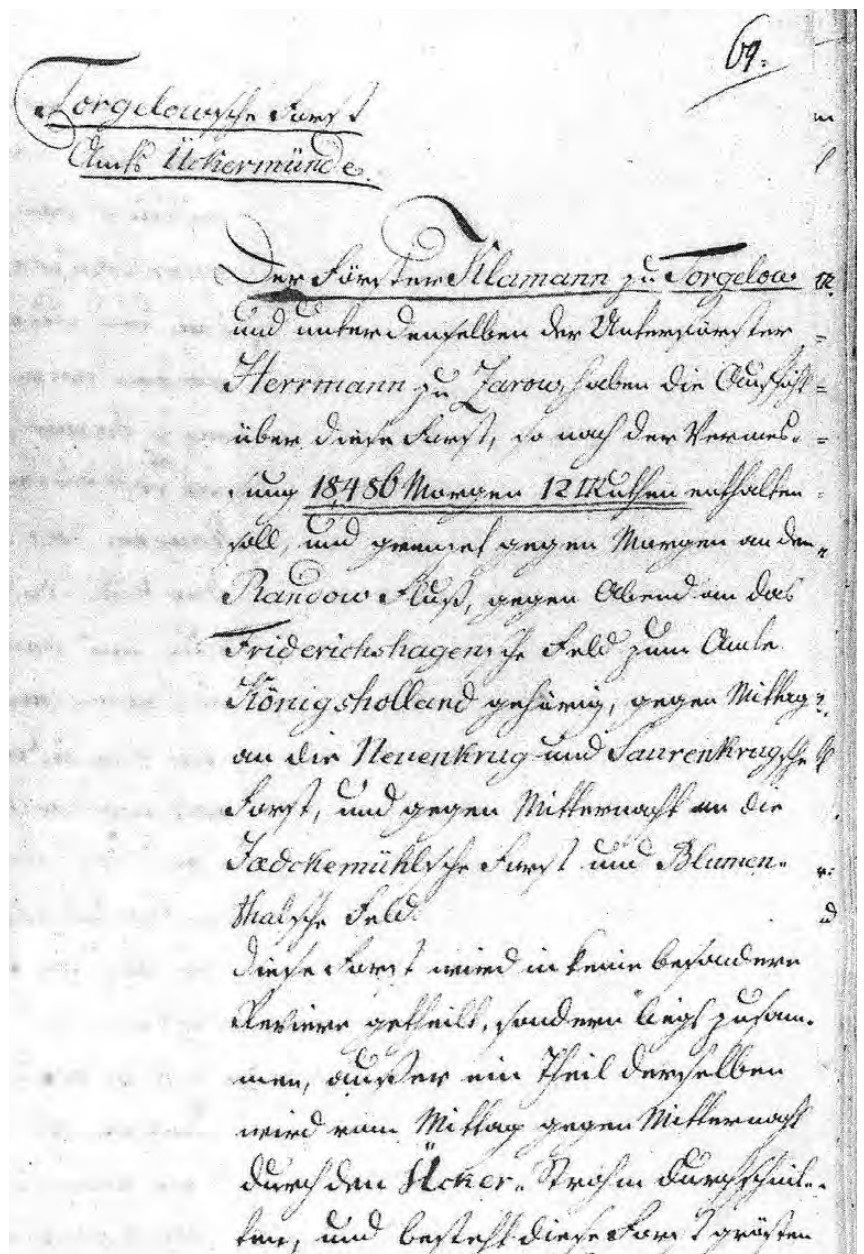 69.
Torgelowsche Forst
Amts Ückermünde.
Der Förster Klamann zu Torgelow
und unter demselben der Unterförster
Herrmann zu Zarow, haben die Aufsicht
über diese Forst, so nach der Vermes-
sung 18486 Morgen 121 Ruthen enthalten
soll, und grenzet gegen Morgen an den
Randow Fluß, gegen Abend an das
Friderichshagensche Feld zum Amte
Königsholland gehörig, gegen Mittag
an die Neuenkrug und Saurenkrugsche
Forst, und gegen Mitternacht an die
Jædckemühlsche Forst und Blumen-
thalsche Feld.
Diese Forst wird in keine besondere
Reviere getheilt, sondern liegt zusam-
men, außer ein Theil derselben
wird vom Mittag gegen Mitternacht
durch den Ücker-Strohm durchschnit-
ten, und besteht diese Forst grösten